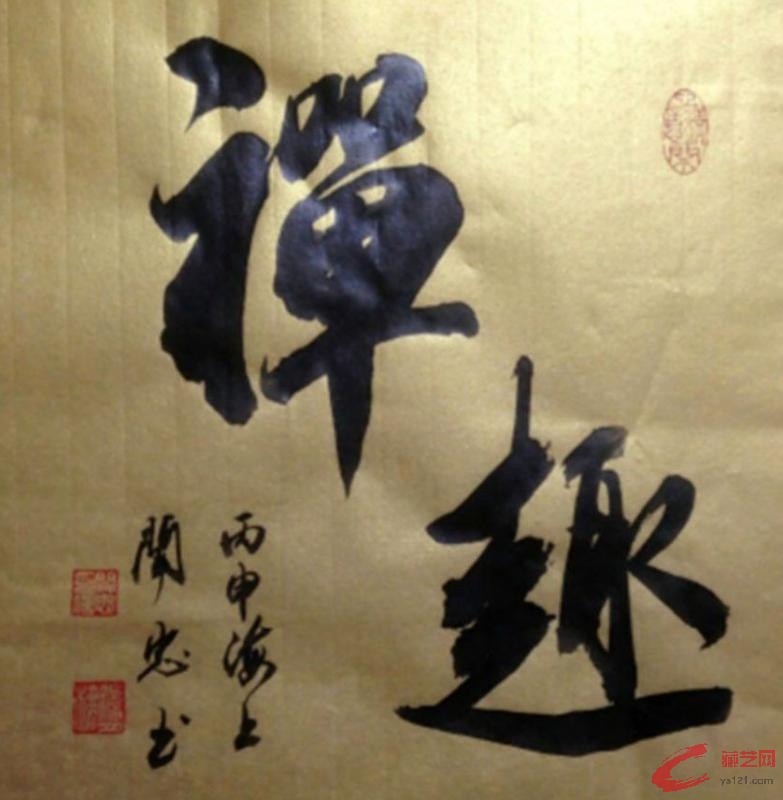 禪
趣
丙申海上
忠书
艺网
ya121.com